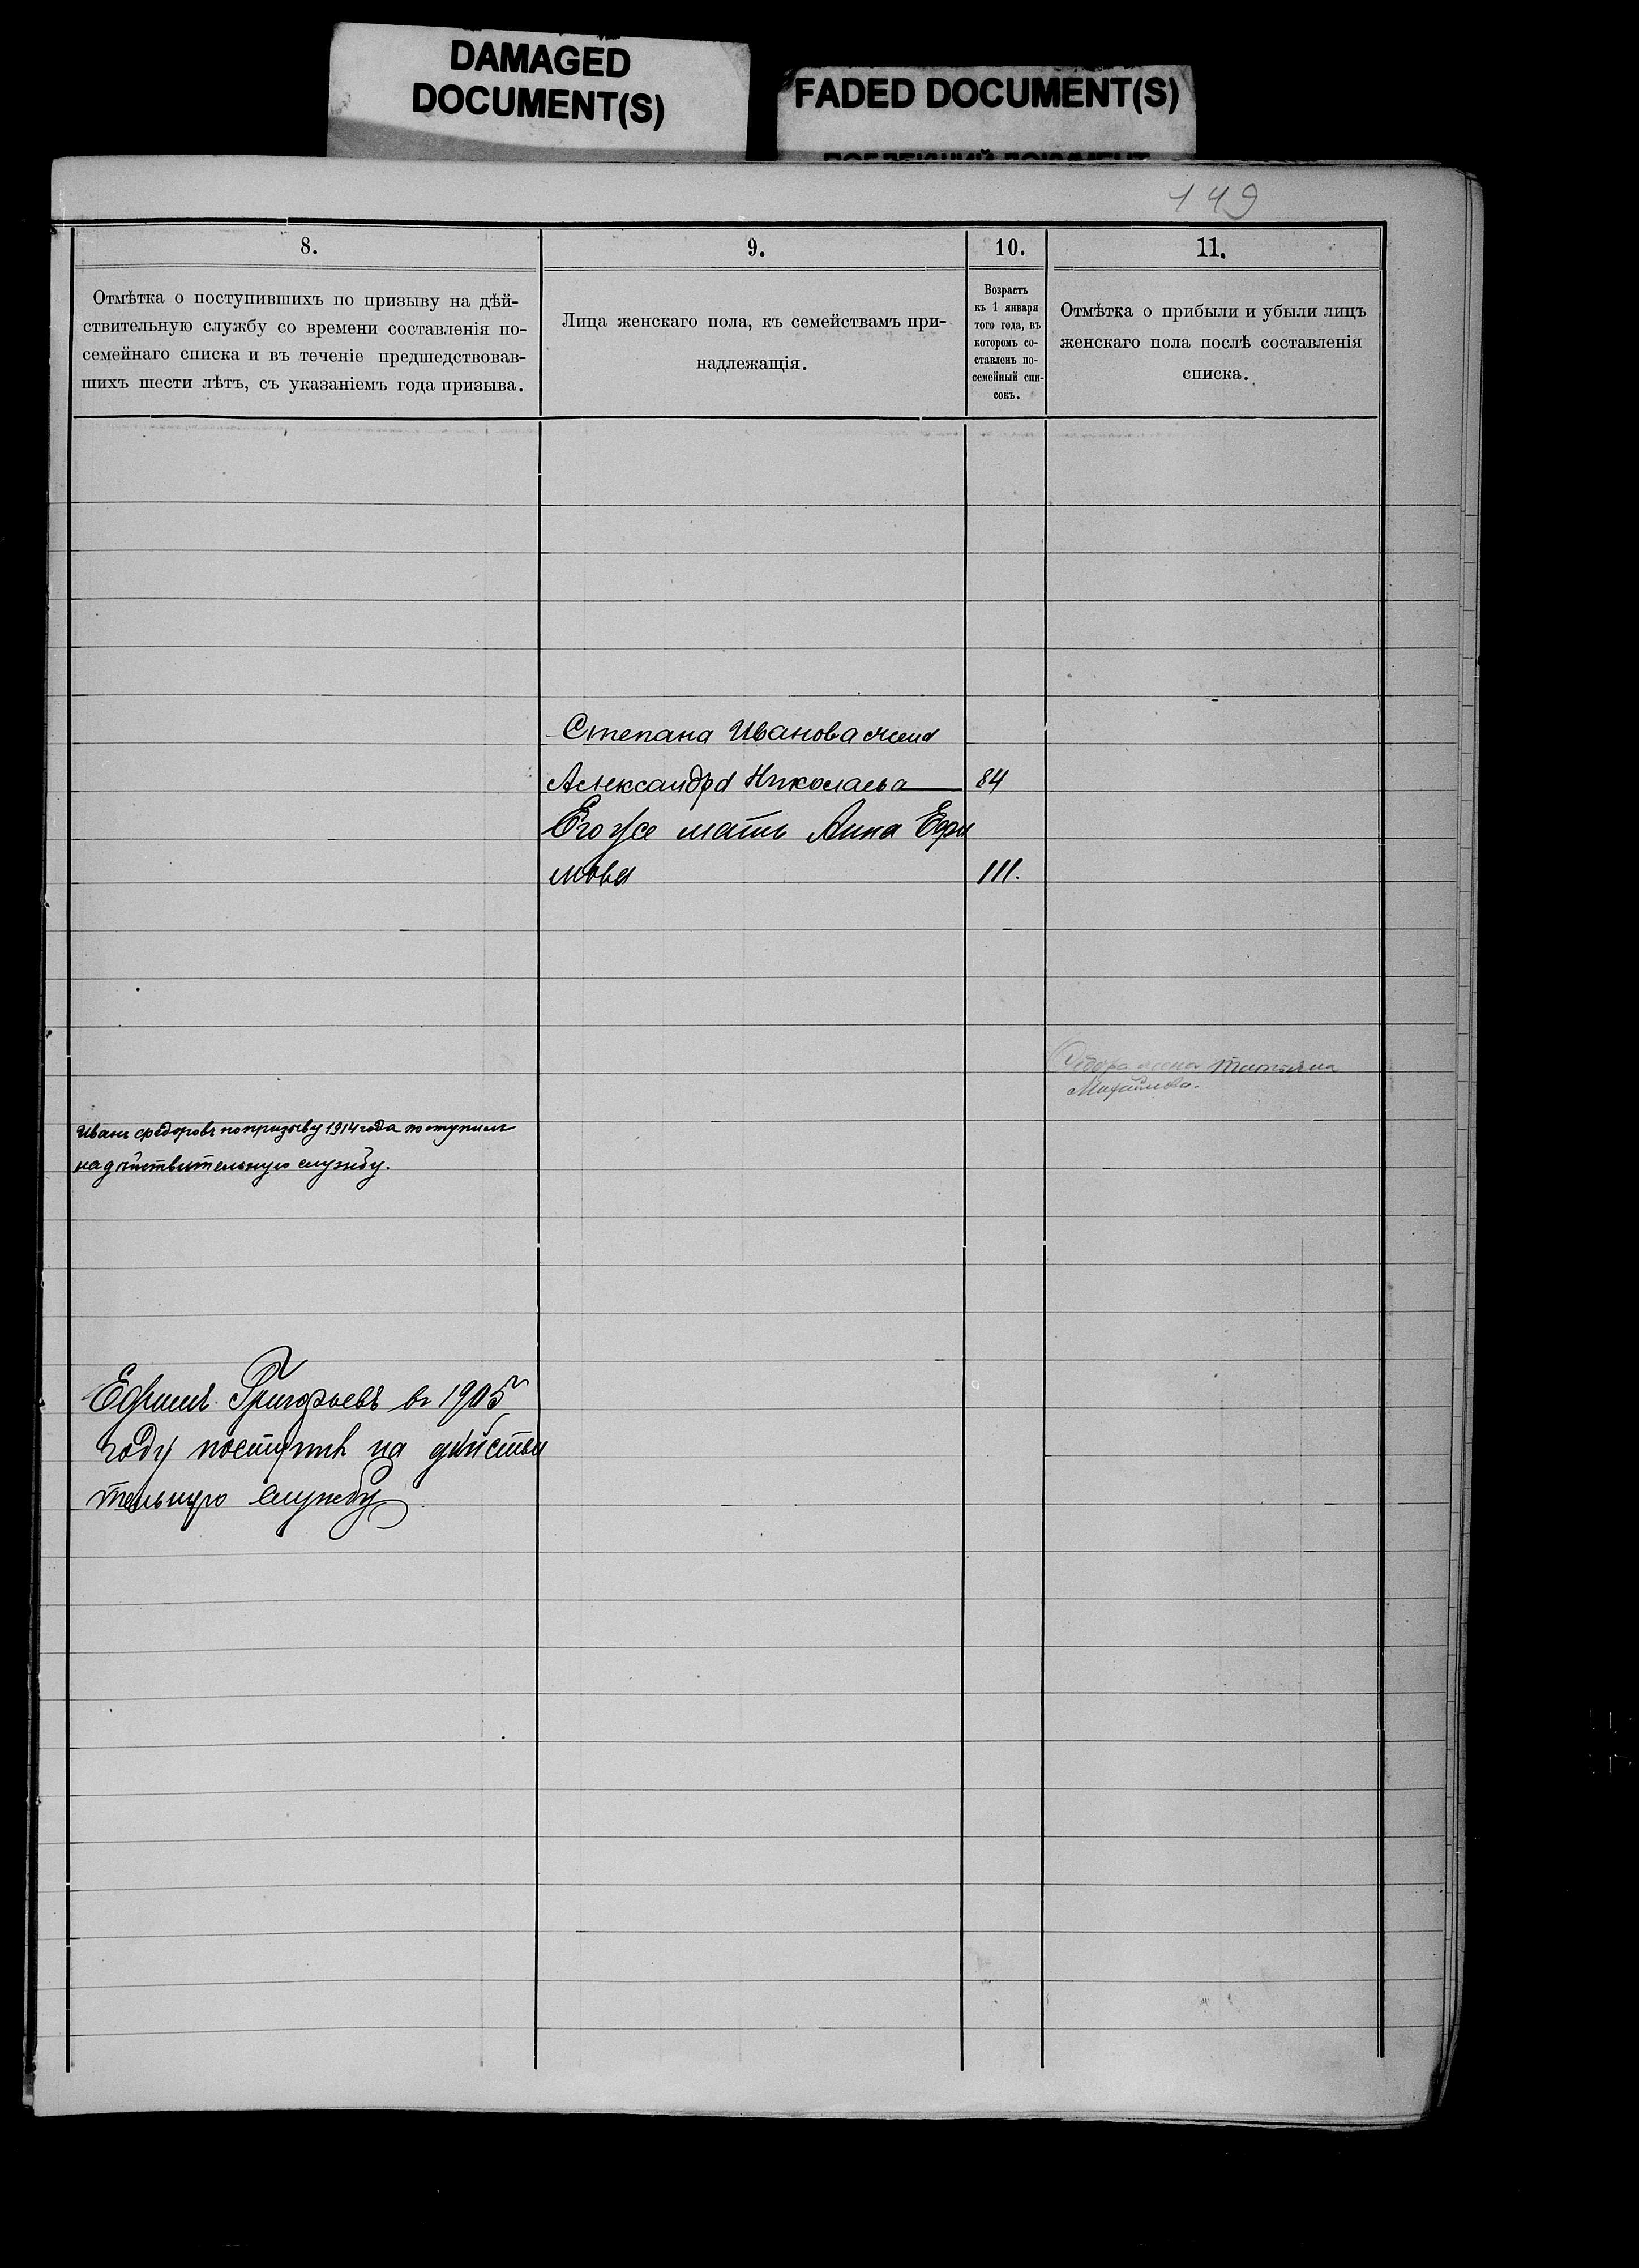 DAMAGED
DOCUMENT(S)
FADED DOCUMENT(S)
149
8.
Отмѣтка о поступившихъ по призыву на дѣй-
ствительную службу со времени составленія по-
семейнаго списка и въ теченіе предшедствовав-
шихъ шести лѣтъ, съ указаніемъ года призыва.
9.
Лица женскаго пола, къ семействамъ при-
надлежащія.
10.
Возрастъ
къ 1 января
того года, въ
которомъ со-
ставленъ по-
семейный спи-
сокъ.
11.
Отмѣтка о прибыли и убыли лицъ
женскаго пола послѣ составленія
списка.
Степана Иванова жена
Александра Николаева 84
Его же мать Анна Ефи
мова 111.
Федора жена Татьяна
Михайлова.
Иванъ Федоровъ по призыву 1914 года поступилъ
на дѣйствительную службу.
Ефимъ Григорьевъ въ 1905
году поступилъ на дѣйстви
тельную службу.